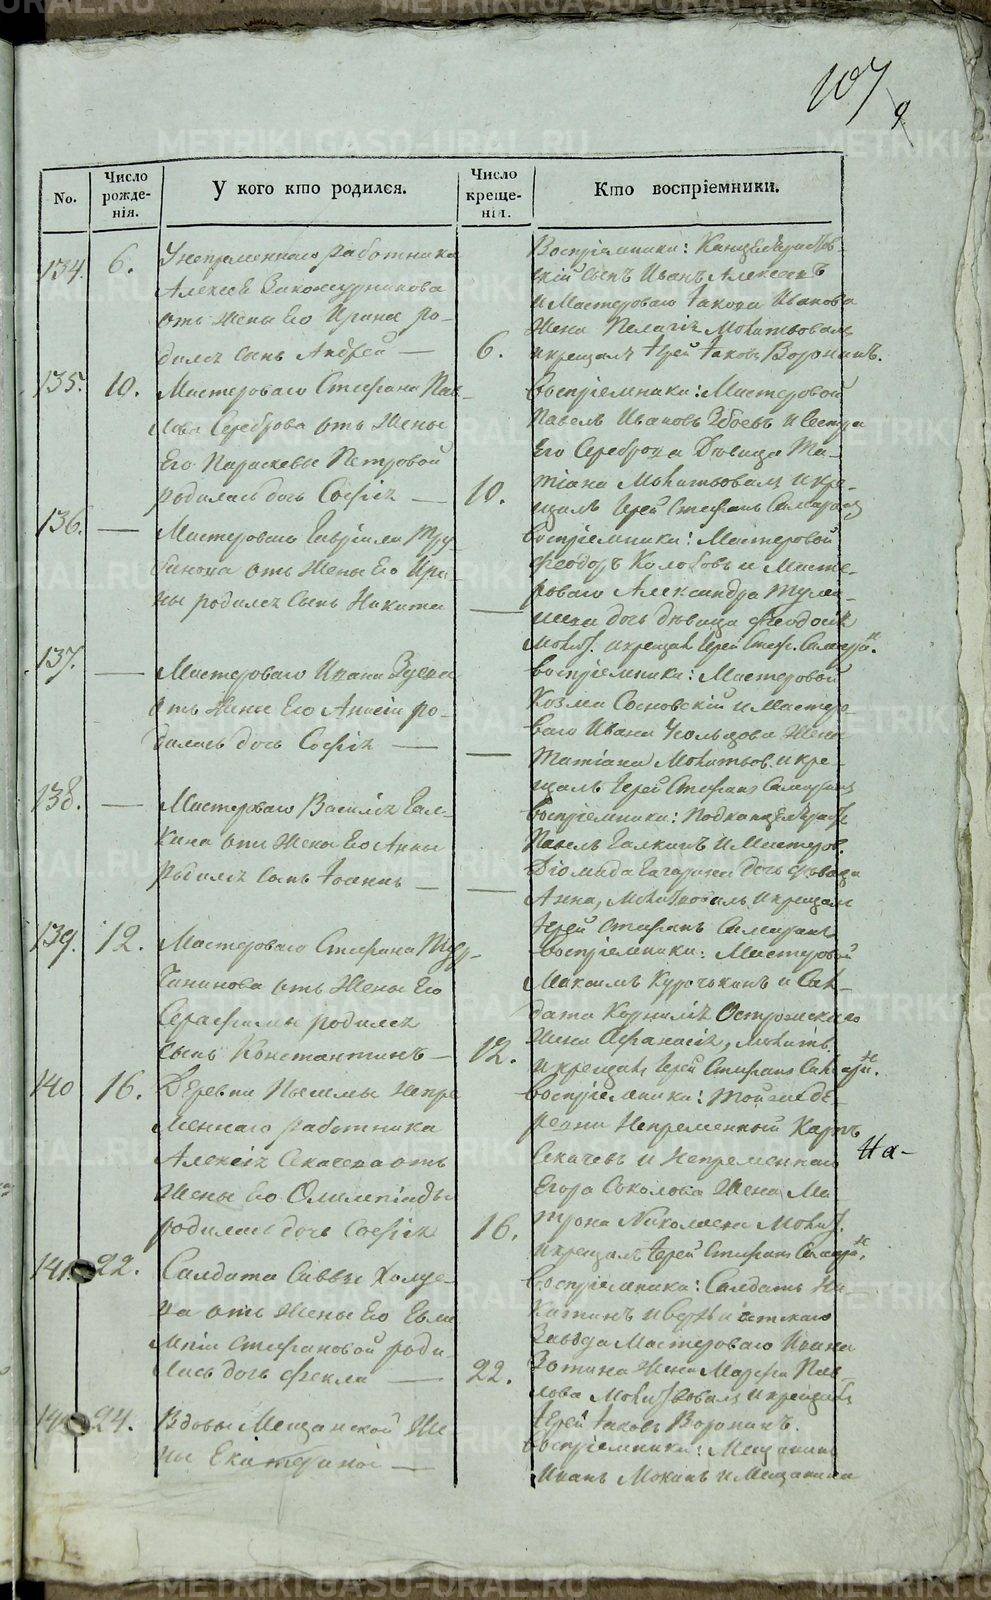 107
9
No.
Число рожде-нія.
У кого кто родился.
Число креще-нія.
Кто воспріемники.
134. 6.
Унепременнаго работника
Алексея
отъ жены Его Ирины ро-
дился сынъ Андрей — 6.
Воспріемники: Канцелярист-
скій сынъ Иванъ Алексеевъ
и Мастероваго Iакова Иванова
Жена Пелагія Молитвовалъ
и крещалъ Iерей Iаковъ Воронинъ.
135. 10.
Мастероваго Стефана Пав-
лова Сереброва отъ Жены
Его Параскевы Петровой
родилась дочь Софія — 10.
Воспріемники: Мастеровой
Павелъ Ивановъ Збоевъ и Сестра
Его Сереброва Дѣвица Та-
тіана Молитвовалъ и кре-
щалъ Iерей Стефанъ
136. —
Мастероваго Гавріила Тру-
бинова отъ Жены Его Ири-
ны родился сынъ Никита —
Воспріемники: Мастеровой
Феодоръ Колобовъ и Масте-
роваго Александра
дочь дѣвица Феодосія
Молит. и крещалъ Iерей Стеф.
137. —
Мастероваго Ивана Зуева
отъ Жены Его Анисіи ро-
дилась дочь Софія — —
Воспріемники: Мастеровой
Козма Сосновскій и Мастеро-
ваго Ивана Жена
Татіана Молитвов. и кре-
щалъ Iерей Стефанъ
138. —
Мастероваго Василія Гал-
кина отъ Жены Его Анны
родился сынъ Iоаннъ — —
Воспріемники: Подканцеляристъ
Павелъ Галкинъ и Мастеров.
Діомида Гагарина дочь дѣвица
Анна, Молитвовалъ и крещалъ
Iерей Стефанъ
139. 12.
Мастероваго Стефана Тур-
чанинова отъ Жены Его
Серафимы родился
сынъ Константинъ — 12.
Воспріемники: Мастеровой
Максимъ Курочькинъ и Сал-
дата Корнилія Остромскаго
Жена Афанасія, Молитв.
и крещалъ Iерей Стефанъ
140 16.
Деревни Пышмы Непре
меннаго работника
Алексія Секачева отъ
Жены Его Олимпіады
родилась дочь Софія 16.
Воспріемники: Тойже де-
ревни Непременный Карпъ
Секачевъ и Непременнаго
Егора Соколова Жена Ма-
трона Николаева Молит.
и крещалъ Iерей Стефанъ
На-
141. 22.
Салдата Саввы
на отъ Жены Его Евли
мпіи Стефановой роди-
лась дочь Фекла — 22.
Воспріемники: Салдатъ Ни-
китинъ и Верхъисетскаго
Завода Мастероваго Ивана
Зотина Жена Марфа Пав-
лова Молитвовалъ и крещалъ
Iерей Iаковъ Воронинъ.
24.
Вдовы Мещанской Же
ны Екатерины —
Воспріемники: Мещанинъ
Иванъ Мокинъ и Мещанина